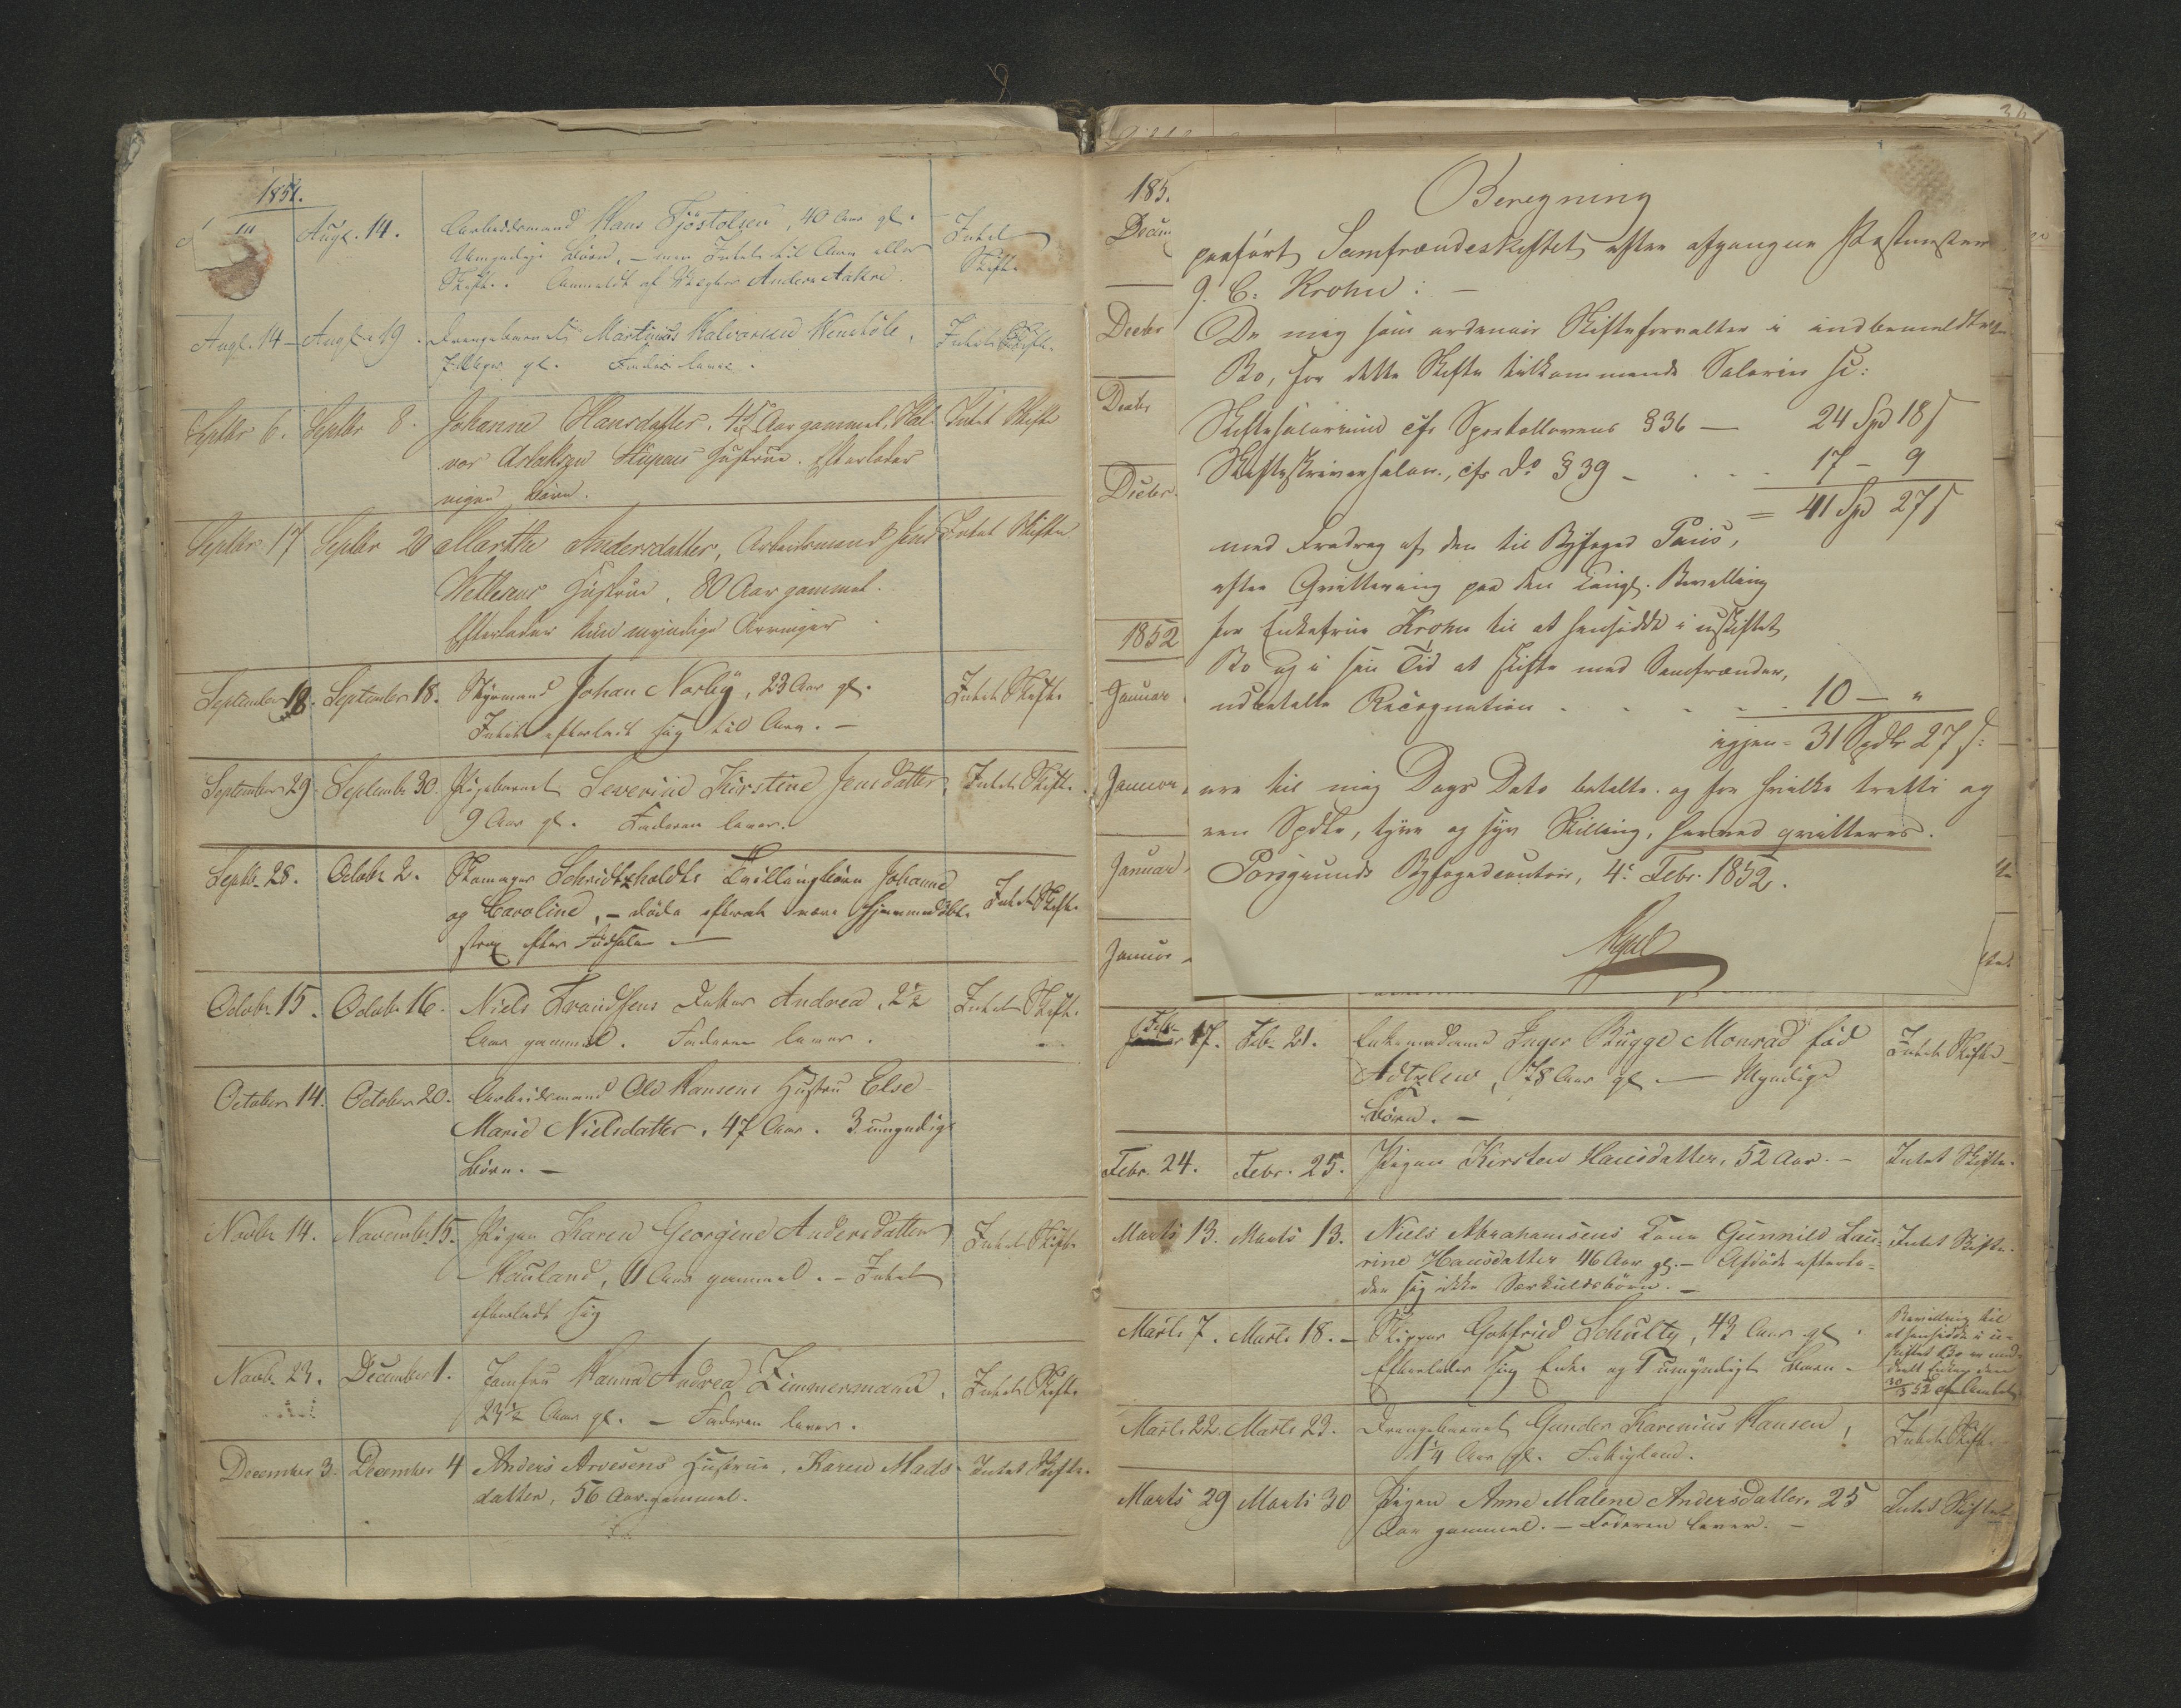 1851.
Augt. 14.
Arbeidsmand Hans Tjöstolsen, 40 Aar gl.
Umyndige Børn, – men Intet til Arv eller
Skifte. Anmeldt af Anders Aakre.
Intet
Skifte
Augt. 14 – Augt. 19.
Drengebarnet Martinius Halvorsen
gl. Fader lever.
Intet Skifte.
Septbr 6. Septbr 8.
Johanne Hansdatter, 45 Aar gammel, Hal-
vor Aslaksen Hustrue. Efterlader
ingen Børn.
Intet Skifte
Septbr 17 Septbr 20
Marthe Andersdatter, Arbeidsmand Jens
Hustrue, 80 Aar gammel.
Efterlader kun myndige Arvinger
Intet Skifte
September 18. September 18.
Styrmand Johan Norby, 23 Aar gl.
Intet efterladt sig til Arv. –
Intet Skifte
September 29. September 30.
Pigebarnet Severine Kirstine Jensdatter,
9 Aar gl. Faderen lever.
Intet Skifte.
Septb. 28. Octobr 2.
Skomager Schridtzholdts Tvillingbørn Johanne
og Caroline, – døde efterat være hjemmedøbt
strax efter Fødselen –
Intet Skifte
Octobr 15. Octobr 16.
Niels Frandsens Datter Andrea, 2½
Aar gammel. Faderen lever.
Intet Skifte.
October 14. October 20.
Arbeidsmand Ole Hansens Hustru Else
Marie Nielsdatter, 47 Aar. 3 umyndige
Børn. –
Novbr 14. November 15.
Pigen Karen Georgine Andersdatter
Hauland, 11 Aar gammel. – Intet
efterladt sig
Intet Skifte
Novb. 23. December 1.
Jomfru Hanna Andrea Zimmermann,
23½ Aar gl. – Faderen lever.
Intet Skifte
December 3. December 4
Anders Arvesens Hustrue, Karen Mads-
datter, 56 Aar gammel.
Intet Skifte.
185
Decem
Decbr
Decbr
Decbr.
1852
Januar
Januar
Januar
Januar
Beregning
paaført Samfrændeskiftet efter afgangne Postmester
J. C. Krohn: –
De mig som ordinair Skifteforvalter i indbemeldte
Bo, for dette Skifte tilkommende Salarier sc:
Skiftesalarium cfr Sportellovens § 36 – 24 Spd 18 s
Skifteskriversalar., cfr Do § 39 – 17 – 9
= 41 Spd 27 s
med Fradrag af den til Byfoged Paus,
efter Qvittering paa den kongl. Bevilling
for Enkefrue Krohn til at hensidde i uskiftet
Bo og i sin Tid at skifte med Samfrænder,
udbetalte Recognition 10 – "
igjen = 31 Spdlr 27 s:
ere til mig Dags Dato betalte, og for hvilke tretti og
een Spdlr, tyve og syv Skilling, herved qvitteres.
Porsgrunds Byfogedcontoir, 4de Febr. 1852.
Febr 17. Feb. 21.
Enkemadame Inger Bugge Monrad fød
Adtzlew, 78 Aar gl – Myndige
Børn. –
Intet Skifte –
Febr. 24. Febr. 25.
Pigen Kirsten Hansdatter, 52 Aar. –
Intet Skifte.
Marts 13. Marts 13.
Niels Abrahamsens Kone Gunnild Lau-
rine Hansdatter 46 Aar gl. – Afdøde efterla-
der sig ikke Særkuldsbørn. –
Intet Skifte.
Marts 7. Marts 18. –
Skipper Gotfried Schultz, 43 Aar gl.
Efterlader sig Enke og 7 umyndige Børn.
Bevilling til
at hensidde i u-
skiftet Bo er med-
deelt Enken den
30/3 52 af Amtet
Marts 22. Marts 23.
Drengebarnet Gunder Karenius Hansen,
1¼ Aar gl. Fattiglem.
Intet Skifte.
Marts 29 Marts 30
Pigen Anne Malene Andersdatter, 25
Aar gammel. – Faderen lever. –
Intet Skifte